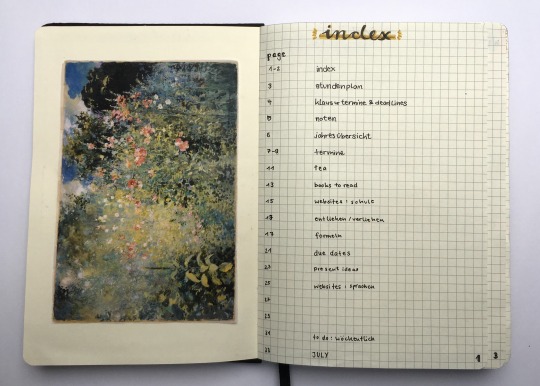 index
page
1-2 index
3 stundenplan
4 klausurtermine & deadlines
5 noten
6 jahresübersicht
7-8 termine
11 tea
13 books to read
15 websites: schule
entliehen/verliehen
formeln
21 due dates
present ideas
25 websites: sprachen
to do: wöchentlich
JULY
1 3